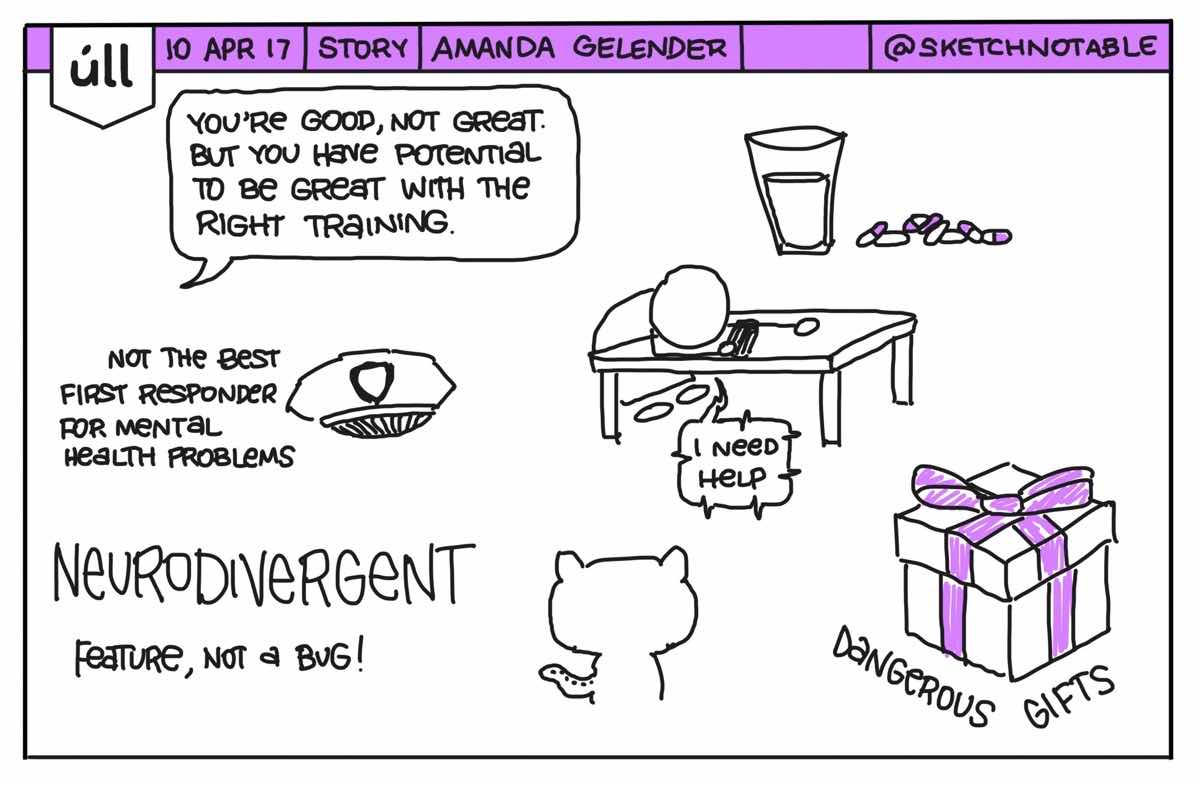 úll
10 APR 17
STORY
AMANDA GELENDER
@SKETCHNOTABLE
YOU'RE GOOD, NOT GREAT.
BUT YOU HAVE POTENTIAL
TO BE GREAT WITH THE
RIGHT TRAINING.
NOT THE BEST
FIRST RESPONDER
FOR MENTAL
HEALTH PROBLEMS
I NEED
HELP
NEURODIVERGENT
FEATURE, NOT A BUG!
DANGEROUS GIFTS